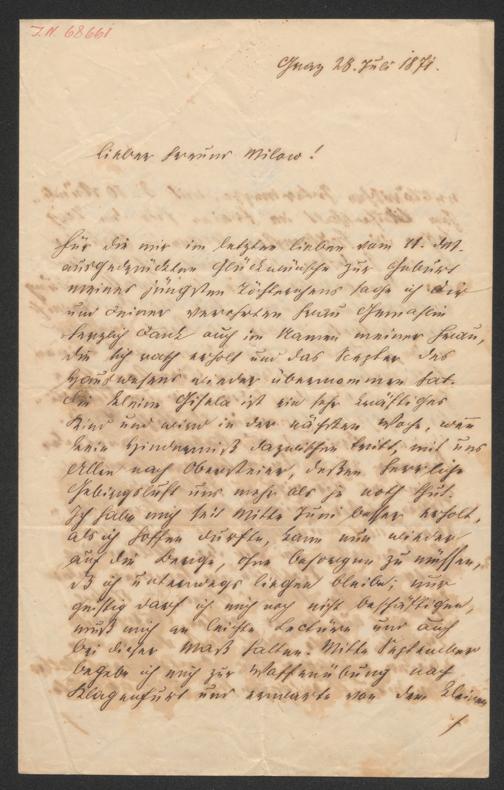 I.N. 68661
Graz 28. Juli 1871.
Lieber Freund Milow!
Für die mir im letzten lieben vom 11. dM.
ausgedrückten Glückwünsche zur Geburt
meines jüngsten Töchterchens sage ich dir
und deiner verehrten Frau Gemalin
herzlich Dank auch im Namen meiner Frau,
die sich rasch erholt und das Szepter des
Hauswesens wieder übernommen hat.
Die kleine Gisela ist ein sehr kräftiges
Kind und wird in der nächsten Woche, wenn
kein Hinderniß dazwischen tritt, mit uns
Allen nach Obersteier, deßen herrliche
Gebirgsluft uns mehr als je noth thut.
Ich habe mich seit Mitte Juni beßer erholt,
als ich hoffen durfte, kann nun wieder
auf die Berge, ohne besorgen zu müssen,
daß ich unterwegs liegen bleibe; nur
geistig darf ich mich noch nicht beschäftigen,
muß mich an leichte Lectüre und auch
bei dieser Maß halten. Mitte September
begebe ich mich zur Waffenübung nach
Klagenfurt und erwarte von der kleinen